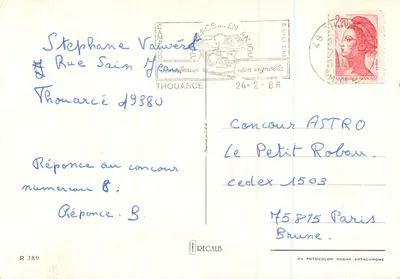 Stephane Vauvert
7 Rue Sain Jean
Thouarcé 49380
Réponse au concour
numereau 8:
Réponse. B
R 389
THOUARCE
24-2-86
2,20
Concour ASTRO
Le Petit Roban.
cedex 1503
75815 Paris
Brune.
REGAUD
PA FOTOCOLOR KODAK EKTACHROME